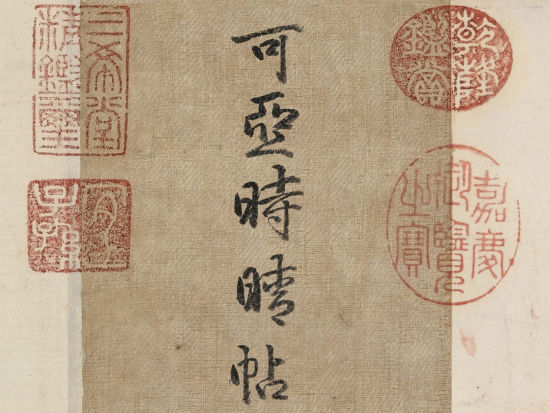 乾隆
鑑賞
嘉慶
御覽
之寶
可亞時晴帖
三希堂
精鑑璽
宜
子孫